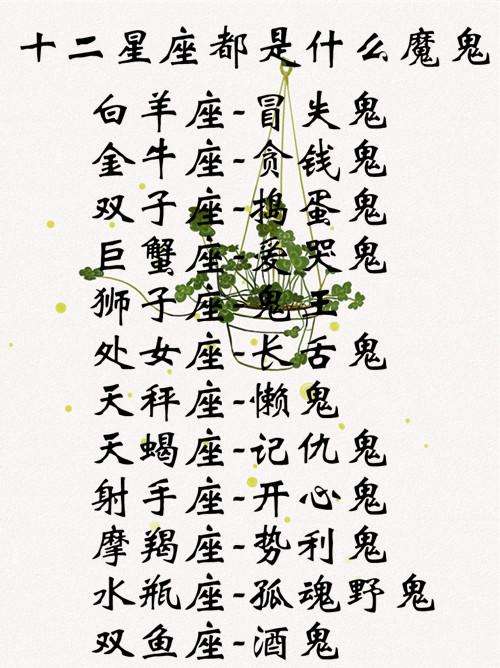 十二星座都是什么魔鬼
白羊座-冒失鬼
金牛座-贪钱鬼
双子座-捣蛋鬼
巨蟹座-爱哭鬼
狮子座-鬼王
处女座-长舌鬼
天秤座-懒鬼
天蝎座-记仇鬼
射手座-开心鬼
摩羯座-势利鬼
水瓶座-孤魂野鬼
双鱼座-酒鬼